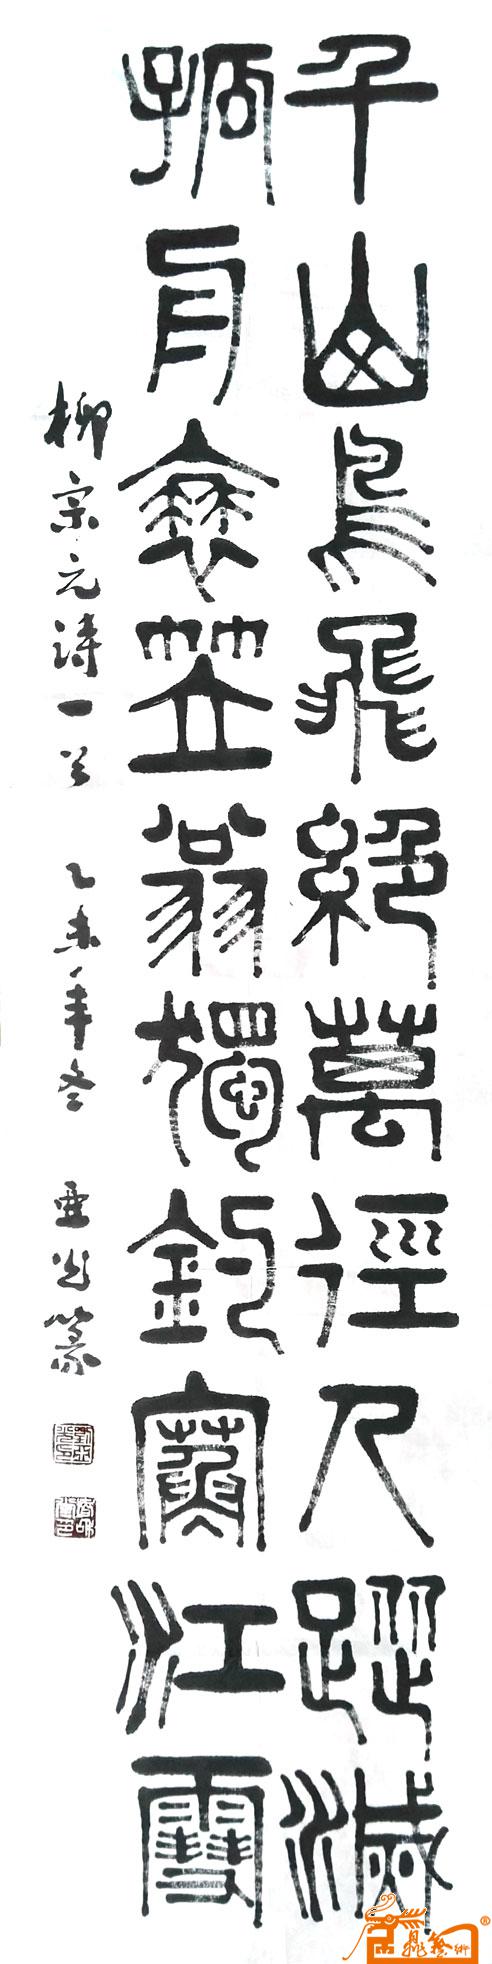 千山鳥飛絕萬徑人蹤滅
孤舟蓑笠翁獨釣寒江雪
柳宗元詩一首 乙未年冬 亚光篆